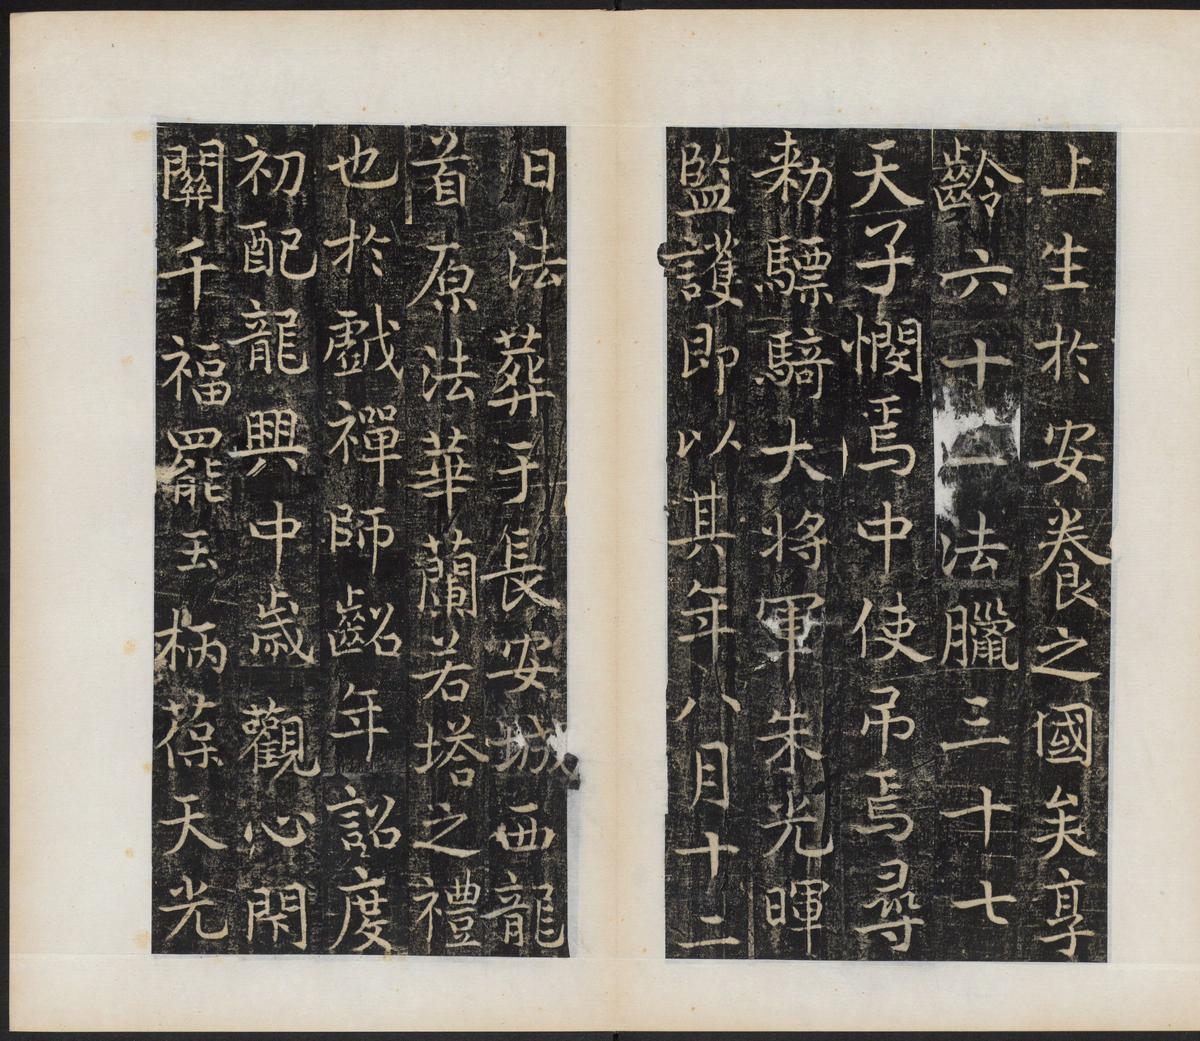 上生於安養之國矣享
齡六十一法臘三十七
天子憫焉中使吊焉尋
勑驃騎大将軍朱光暉
監護即以其年八月十二
日法葬于長安城西龍
首原法華蘭若塔之禮
也於戲禪師齠年詔度
初配龍興中歲觀心閑
關千福罷玉柄葆天光